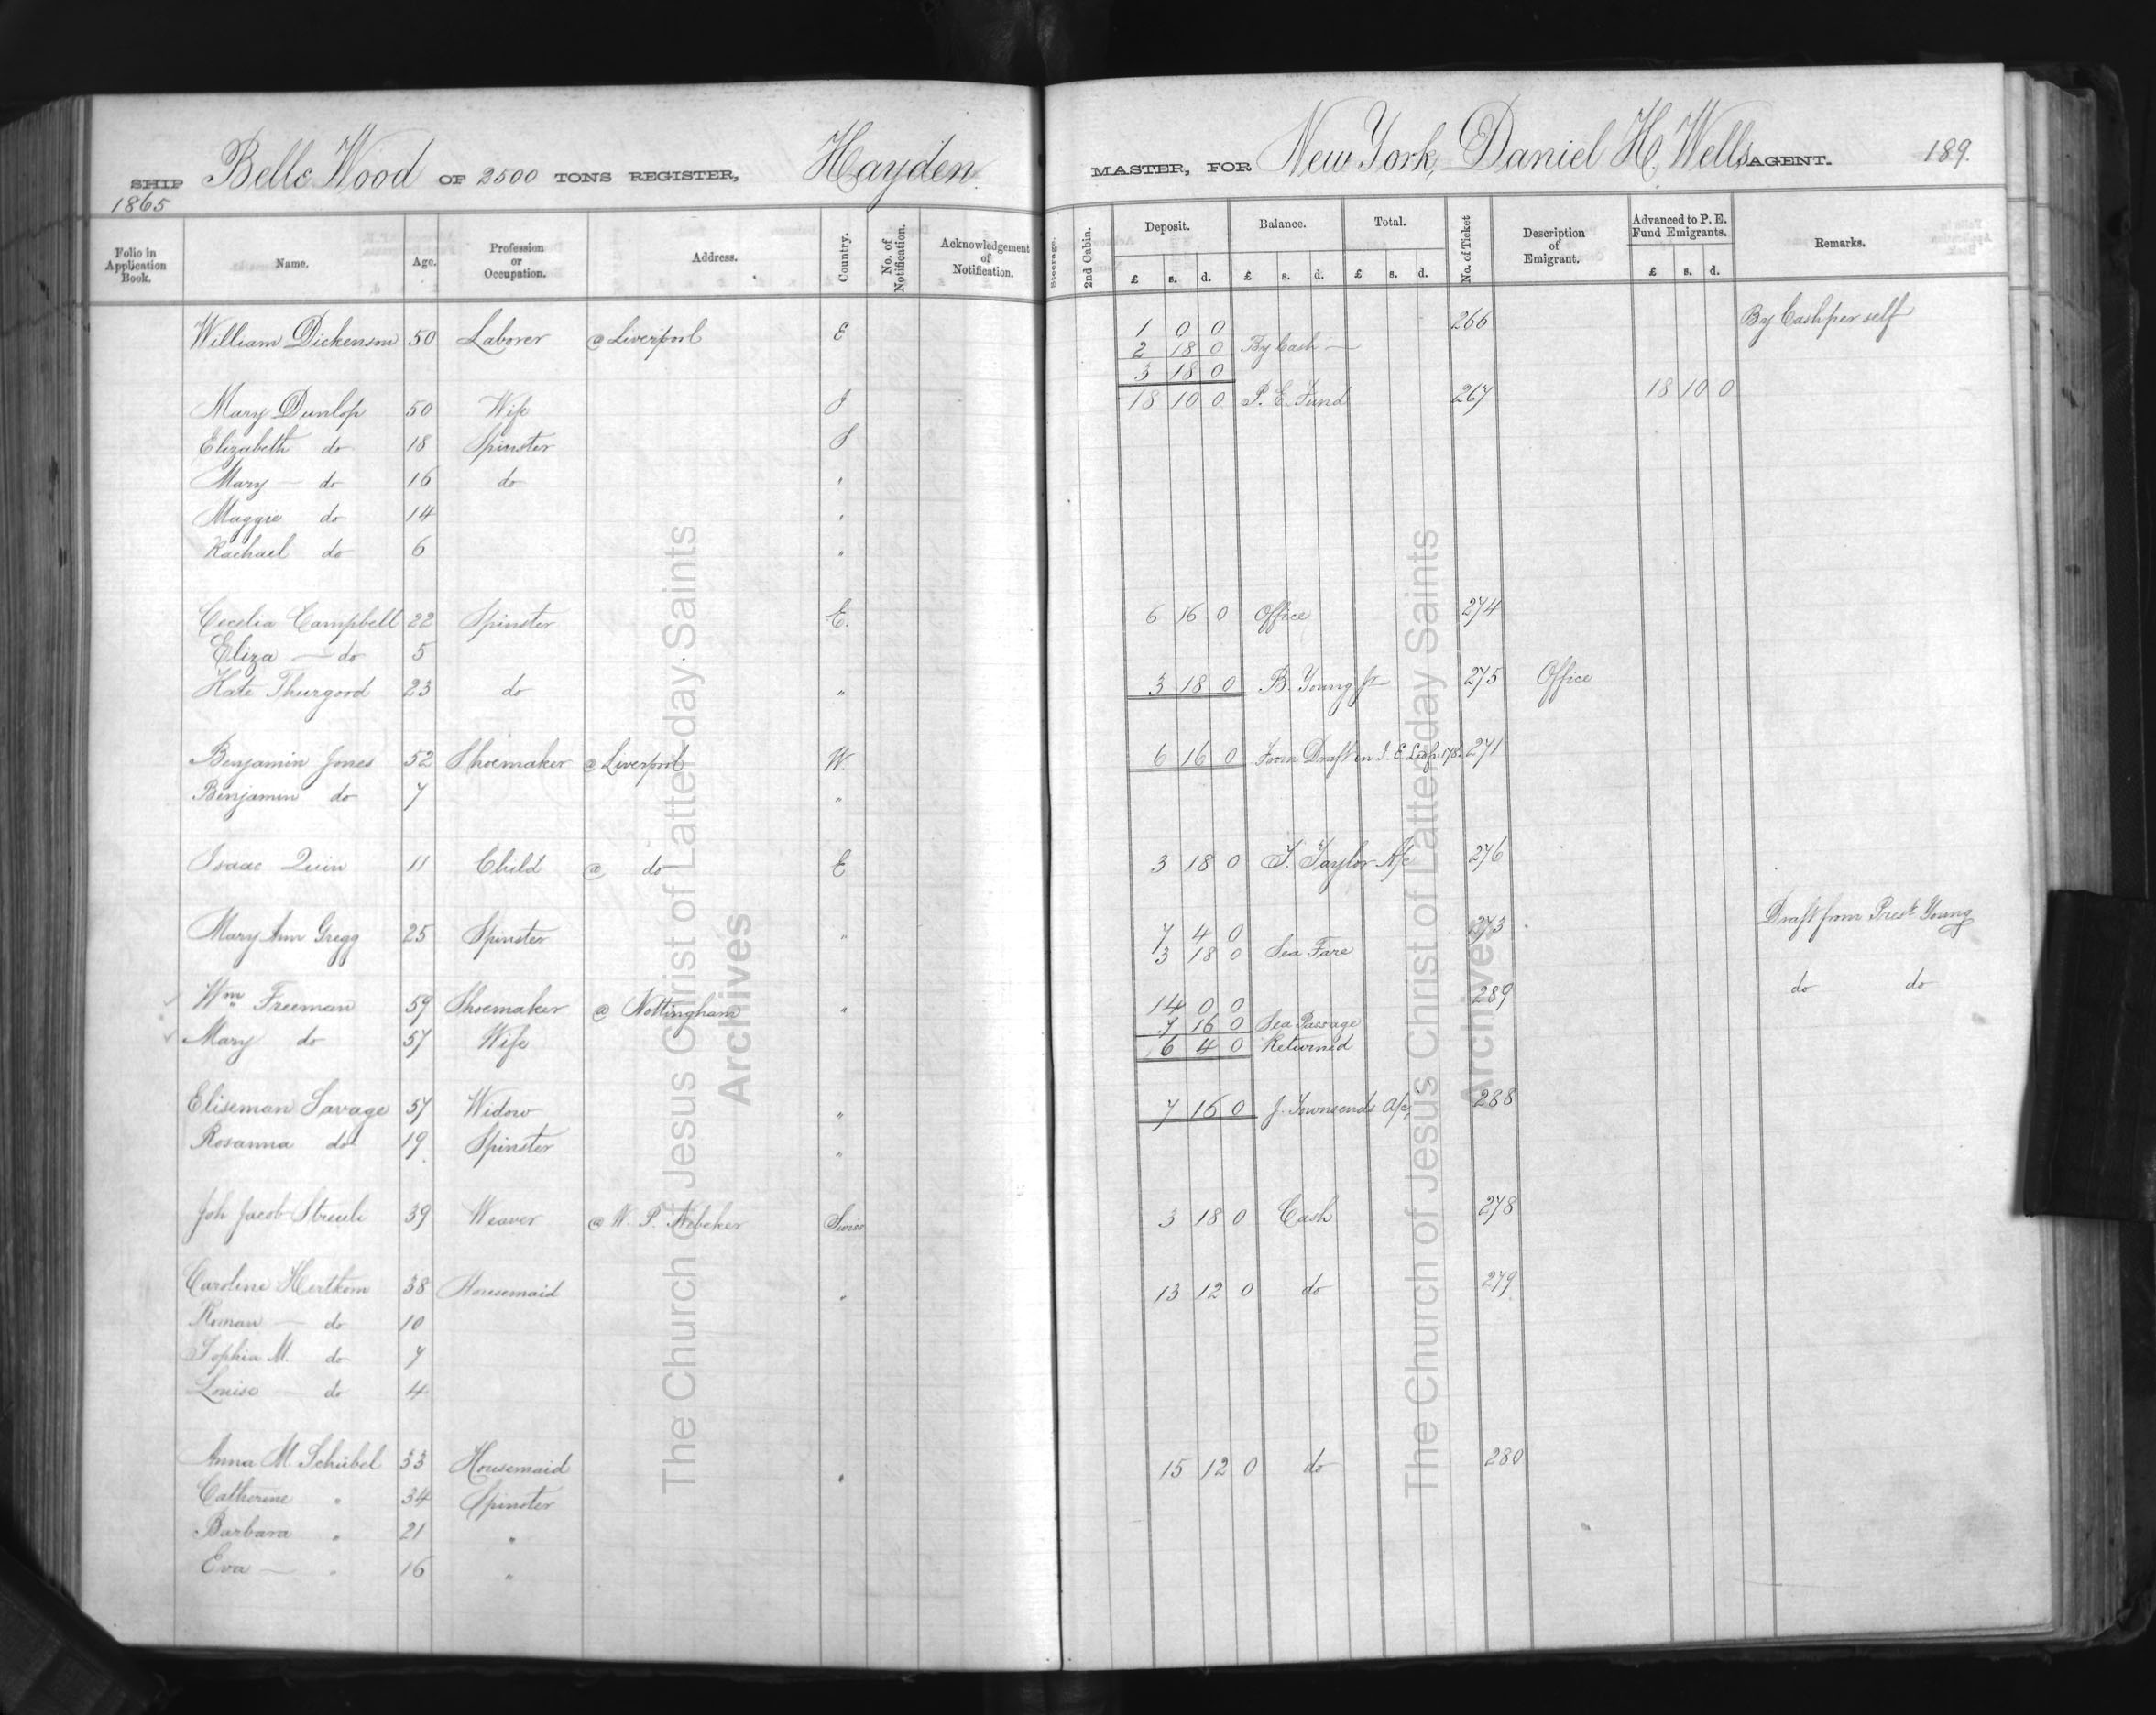 SHIP Belle Wood OF 2500 TONS REGISTER, Hayden MASTER, FOR New York, Daniel H. Wells AGENT. 189.
1865
Folio in Application Book. Name. Age. Profession or Occupation. Address. Country. No. of Notification. Acknowledgement of Notification. Steerage. 2nd Cabin. Deposit. Balance. Total. No. of Ticket Description of Emigrant. Advanced to P. E. Fund Emigrants. Remarks.
£ s. d. £ s. d. £ s. d. £ s. d.
William Dickenson 50 Laborer @ Liverpool E 1 0 0 266 By Cash per self
2 18 0 By Cash —
3 18 0
Mary Dunlop 50 Wife S 18 10 0 P. E. Fund 267 18 10 0
Elizabeth do 18 Spinster S
Mary — do 16 do "
Maggie do 14 "
Rachael do 6 "
Cecelia Campbell 22 Spinster E. 6 16 0 Office 274
Eliza — do 5
Kate Thurgood 23 do " 3 18 0 B. Young Jr 275 Office
Benjamin Jones 52 Shoemaker @ Liverpool W. 6 16 0 From Draft in 271
Benjamin do 7 "
Isaac Quin 11 Child @ do E 3 18 0 Taylor A/c 276
Mary Ann Gregg 25 Spinster " 7 4 0 273 Draft from Prest. Young
3 18 0 Sea Fare
Wm Freeman 59 Shoemaker @ Nottingham " 14 0 0 289 do do
7 16 0 Sea Passage
Mary do 57 Wife 6 4 0 Returned
Eliseman Savage 57 Widow " 7 16 0 J. Townsends A/c 288
Rosanna do 19 Spinster "
Joh Jacob Streuli 39 Weaver @ W. P. Nebeker Swiss 3 18 0 Cash 278
Caroline Hertkom 38 Housemaid " 13 12 0 do 279
Roman — do 10
Sophia M. do 7
Louise — do 4
Anna M. Schübel 53 Housemaid " 15 12 0 do 280
Catherine " 34 Spinster
Barbara " 21 "
Eva — " 16 "
The Church of Jesus Christ of Latter-day Saints
Archives
The Church of Jesus Christ of Latter-day Saints
Archives